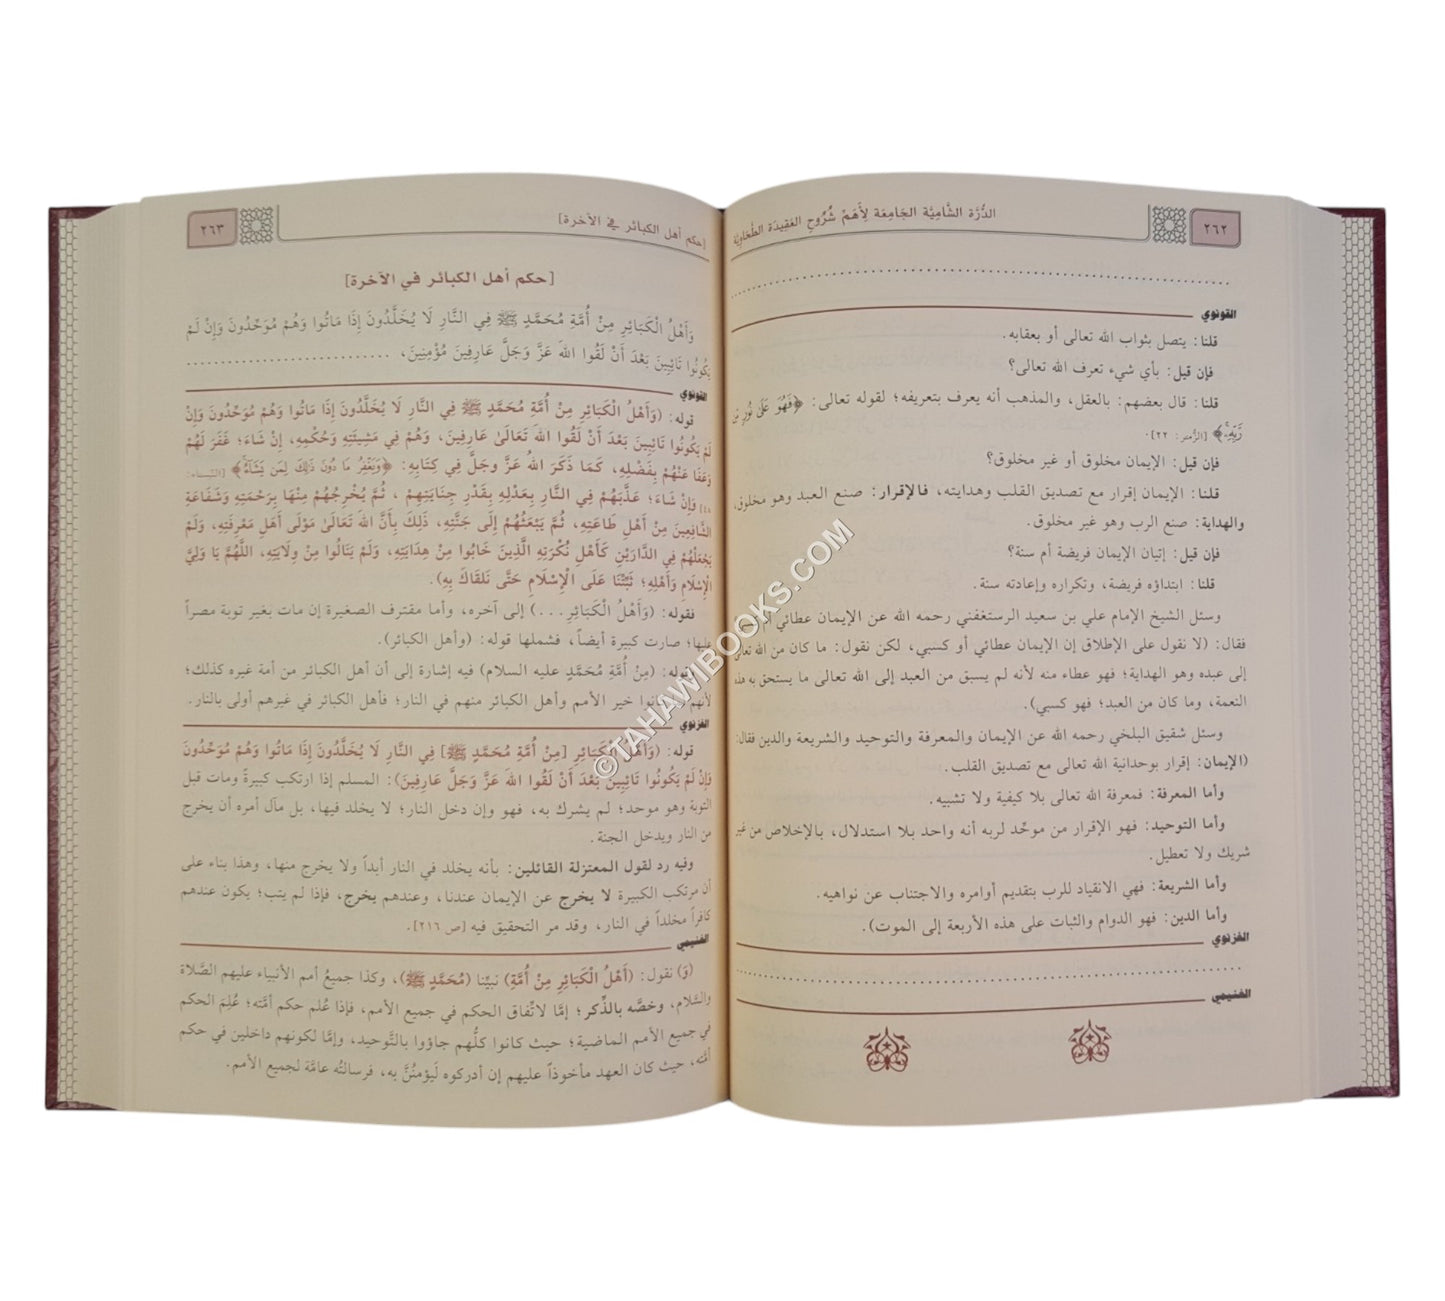 ٢٦٢
الدُّرَّة الشَّامِيَّة الجَامِعَة لِأَهَمِّ شُرُوحِ العَقِيدَة الطَّحَاوِيَّة
القونوي
قلنا: يتصل بثواب الله تعالى أو بعقابه.
فإن قيل: بأي شيء تعرف الله تعالى؟
قلنا: قال بعضهم: بالعقل، والمذهب أنه يعرف بتعريفه؛ لقوله تعالى: ﴿فَهُوَ عَلَىٰ نُورٍ مِّن
رَّبِّهِۦ﴾ [الزُّمَر: ٢٢].
فإن قيل: الإيمان مخلوق أو غير مخلوق؟
قلنا: الإيمان إقرار مع تصديق القلب وهدايته، فالإقرار: صنع العبد وهو مخلوق،
والهداية: صنع الرب وهو غير مخلوق.
فإن قيل: إتيان الإيمان فريضة أم سنة؟
قلنا: ابتداؤه فريضة، وتكراره وإعادته سنة.
وسئل الشيخ الإمام علي بن سعيد الرستغفني رحمه الله عن الإيمان عطائي
فقال: (لا نقول على الإطلاق إن الإيمان عطائي أو كسبي، لكن نقول: ما كان من الله تعالى
إلى عبده وهو الهداية؛ فهو عطاء منه لأنه لم يسبق من العبد إلى الله تعالى ما يستحق به هذه
النعمة، وما كان من العبد؛ فهو كسبي).
وسئل شقيق البلخي رحمه الله عن الإيمان والمعرفة والتوحيد والشريعة والدين فقال:
(الإيمان: إقرار بوحدانية الله تعالى مع تصديق القلب.
وأما المعرفة: فمعرفة الله تعالى بلا كيفية ولا تشبيه.
وأما التوحيد: فهو الإقرار من موحِّد لربه أنه واحد بلا استدلال، بالإخلاص من غير
شريك ولا تعطيل.
وأما الشريعة: فهي الانقياد للرب بتقديم أوامره والاجتناب عن نواهيه.
وأما الدين: فهو الدوام والثبات على هذه الأربعة إلى الموت).
الغزنوي
الغنيمي
[حكم أهل الكبائر في الآخرة]
٢٦٣
[حكم أهل الكبائر في الآخرة]
وَأَهْلُ الْكَبَائِرِ مِنْ أُمَّةِ مُحَمَّدٍ ﷺ فِي النَّارِ لَا يُخَلَّدُونَ إِذَا مَاتُوا وَهُمْ مُوَحِّدُونَ وَإِنْ لَمْ
يَكُونُوا تَائِبِينَ بَعْدَ أَنْ لَقُوا اللهَ عَزَّ وَجَلَّ عَارِفِينَ مُؤْمِنِينَ، ................................
القونوي
قوله: (وَأَهْلُ الْكَبَائِرِ مِنْ أُمَّةِ مُحَمَّدٍ ﷺ فِي النَّارِ لَا يُخَلَّدُونَ إِذَا مَاتُوا وَهُمْ مُوَحِّدُونَ وَإِنْ
لَمْ يَكُونُوا تَائِبِينَ بَعْدَ أَنْ لَقُوا اللهَ تَعَالَىٰ عَارِفِينَ، وَهُمْ فِي مَشِيئَتِهِ وَحُكْمِهِ، إِنْ شَاءَ؛ غَفَرَ لَهُمْ
وَعَفَا عَنْهُمْ بِفَضْلِهِ، كَمَا ذَكَرَ اللهُ عَزَّ وَجَلَّ فِي كِتَابِهِ: ﴿وَيَغْفِرُ مَا دُونَ ذَٰلِكَ لِمَن يَشَآءُ﴾ [النِّسَاء:
٤٨] وَإِنْ شَاءَ؛ عَذَّبَهُمْ فِي النَّارِ بِعَدْلِهِ بِقَدْرِ جِنَايَتِهِمْ ، ثُمَّ يُخْرِجُهُمْ مِنْهَا بِرَحْمَتِهِ وَشَفَاعَةِ
الشَّافِعِينَ مِنْ أَهْلِ طَاعَتِهِ، ثُمَّ يَبْعَثُهُمْ إِلَى جَنَّتِهِ، ذَلِكَ بِأَنَّ اللهَ تَعَالَىٰ مَوْلَى أَهْلِ مَعْرِفَتِهِ، وَلَمْ
يَجْعَلْهُمْ فِي الدَّارَيْنِ كَأَهْلِ نُكْرَتِهِ الَّذِينَ خَابُوا مِنْ هِدَايَتِهِ، وَلَمْ يَنَالُوا مِنْ وِلَايَتِهِ، اللَّهُمَّ يَا وَلِيَّ
الْإِسْلَامِ وَأَهْلِهِ؛ ثَبِّتْنَا عَلَى الْإِسْلَامِ حَتَّى نَلْقَاكَ بِهِ).
فقوله: (وَأَهْلُ الْكَبَائِرِ...) إلى آخره، وأما مقترف الصغيرة إن مات بغير توبة مصراً
عليها؛ صارت كبيرة أيضاً، فشملها قوله: (وأهل الكبائر).
قوله: (مِنْ أُمَّةِ مُحَمَّدٍ عليه السلام) فيه إشارة إلى أن أهل الكبائر من أمة غيره كذلك؛
لأنهم كانوا خير الأمم وأهل الكبائر منهم في النار؛ فأهل الكبائر في غيرهم أولى بالنار.
الغزنوي
قوله: (وَأَهْلُ الْكَبَائِرِ [مِنْ أُمَّةِ مُحَمَّدٍ ﷺ] فِي النَّارِ لَا يُخَلَّدُونَ إِذَا مَاتُوا وَهُمْ مُوَحِّدُونَ
فَإِنْ لَمْ يَكُونُوا تَائِبِينَ بَعْدَ أَنْ لَقُوا اللهَ عَزَّ وَجَلَّ عَارِفِينَ): المسلم إذا ارتكب كبيرةً ومات قبل
التوبة وهو موحد؛ لم يشرك به، فهو وإن دخل النار؛ لا يخلد فيها، بل مآل أمره أن يخرج
من النار ويدخل الجنة.
وفيه رد لقول المعتزلة القائلين: بأنه يخلد في النار أبداً ولا يخرج منها، وهذا بناء على
أن مرتكب الكبيرة لا يخرج عن الإيمان عندنا، وعندهم يخرج، فإذا لم يتب؛ يكون عندهم
كافراً مخلداً في النار، وقد مر التحقيق فيه [ص ٢١٦].
الغنيمي
(وَ) نقول: (أَهْلُ الْكَبَائِرِ مِنْ أُمَّةِ) نبيِّنا (مُحَمَّدٍ ﷺ)، وكذا جميعُ أمم الأنبياء عليهم الصَّلاة
والسَّلام، وخصَّه بالذِّكر؛ إمَّا لاتِّفاق الحكم في جميع الأمم، فإذا عُلم حكم أمَّته؛ عُلِمَ الحكم
في جميع الأمم الماضية؛ حيث كانوا كلُّهم جاؤوا بالتَّوحيد، وإمَّا لكونهم داخلين في حكم
أمَّته، حيث كان العهد مأخوذاً عليهم إن أدركوه لَيؤمنُنَّ به، فرسالتُه عامَّة لجميع الأمم.
©TAHAWIBOOKS.COM